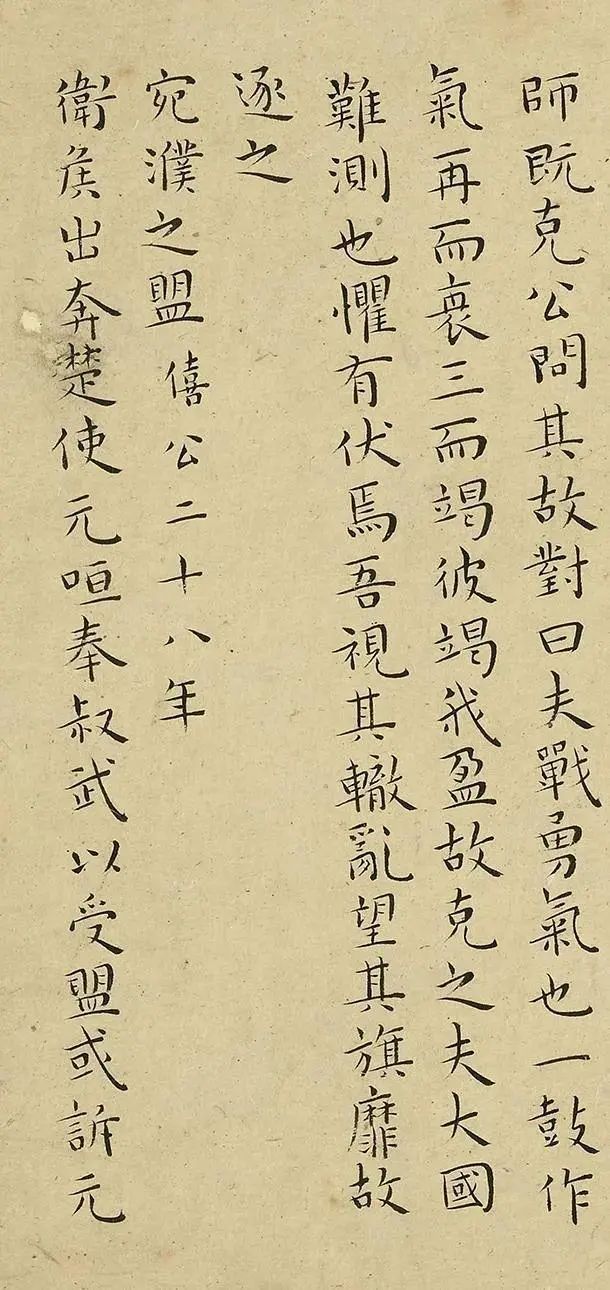 師既克公問其故對曰夫戰勇氣也一鼓作
氣再而衰三而竭彼竭我盈故克之夫大國
難測也懼有伏焉吾視其轍亂望其旗靡故
逐之
宛濮之盟僖公二十八年
衛侯出奔楚使元咺奉叔武以受盟或訴元